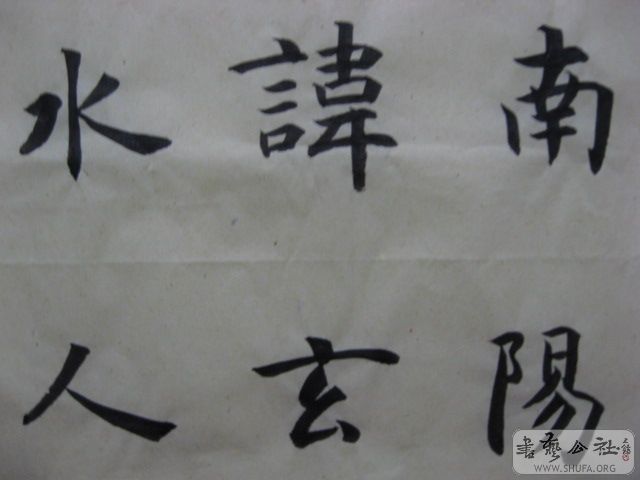 南陽
諱玄
水人
書藝公社
WWW.SHUFA.ORG